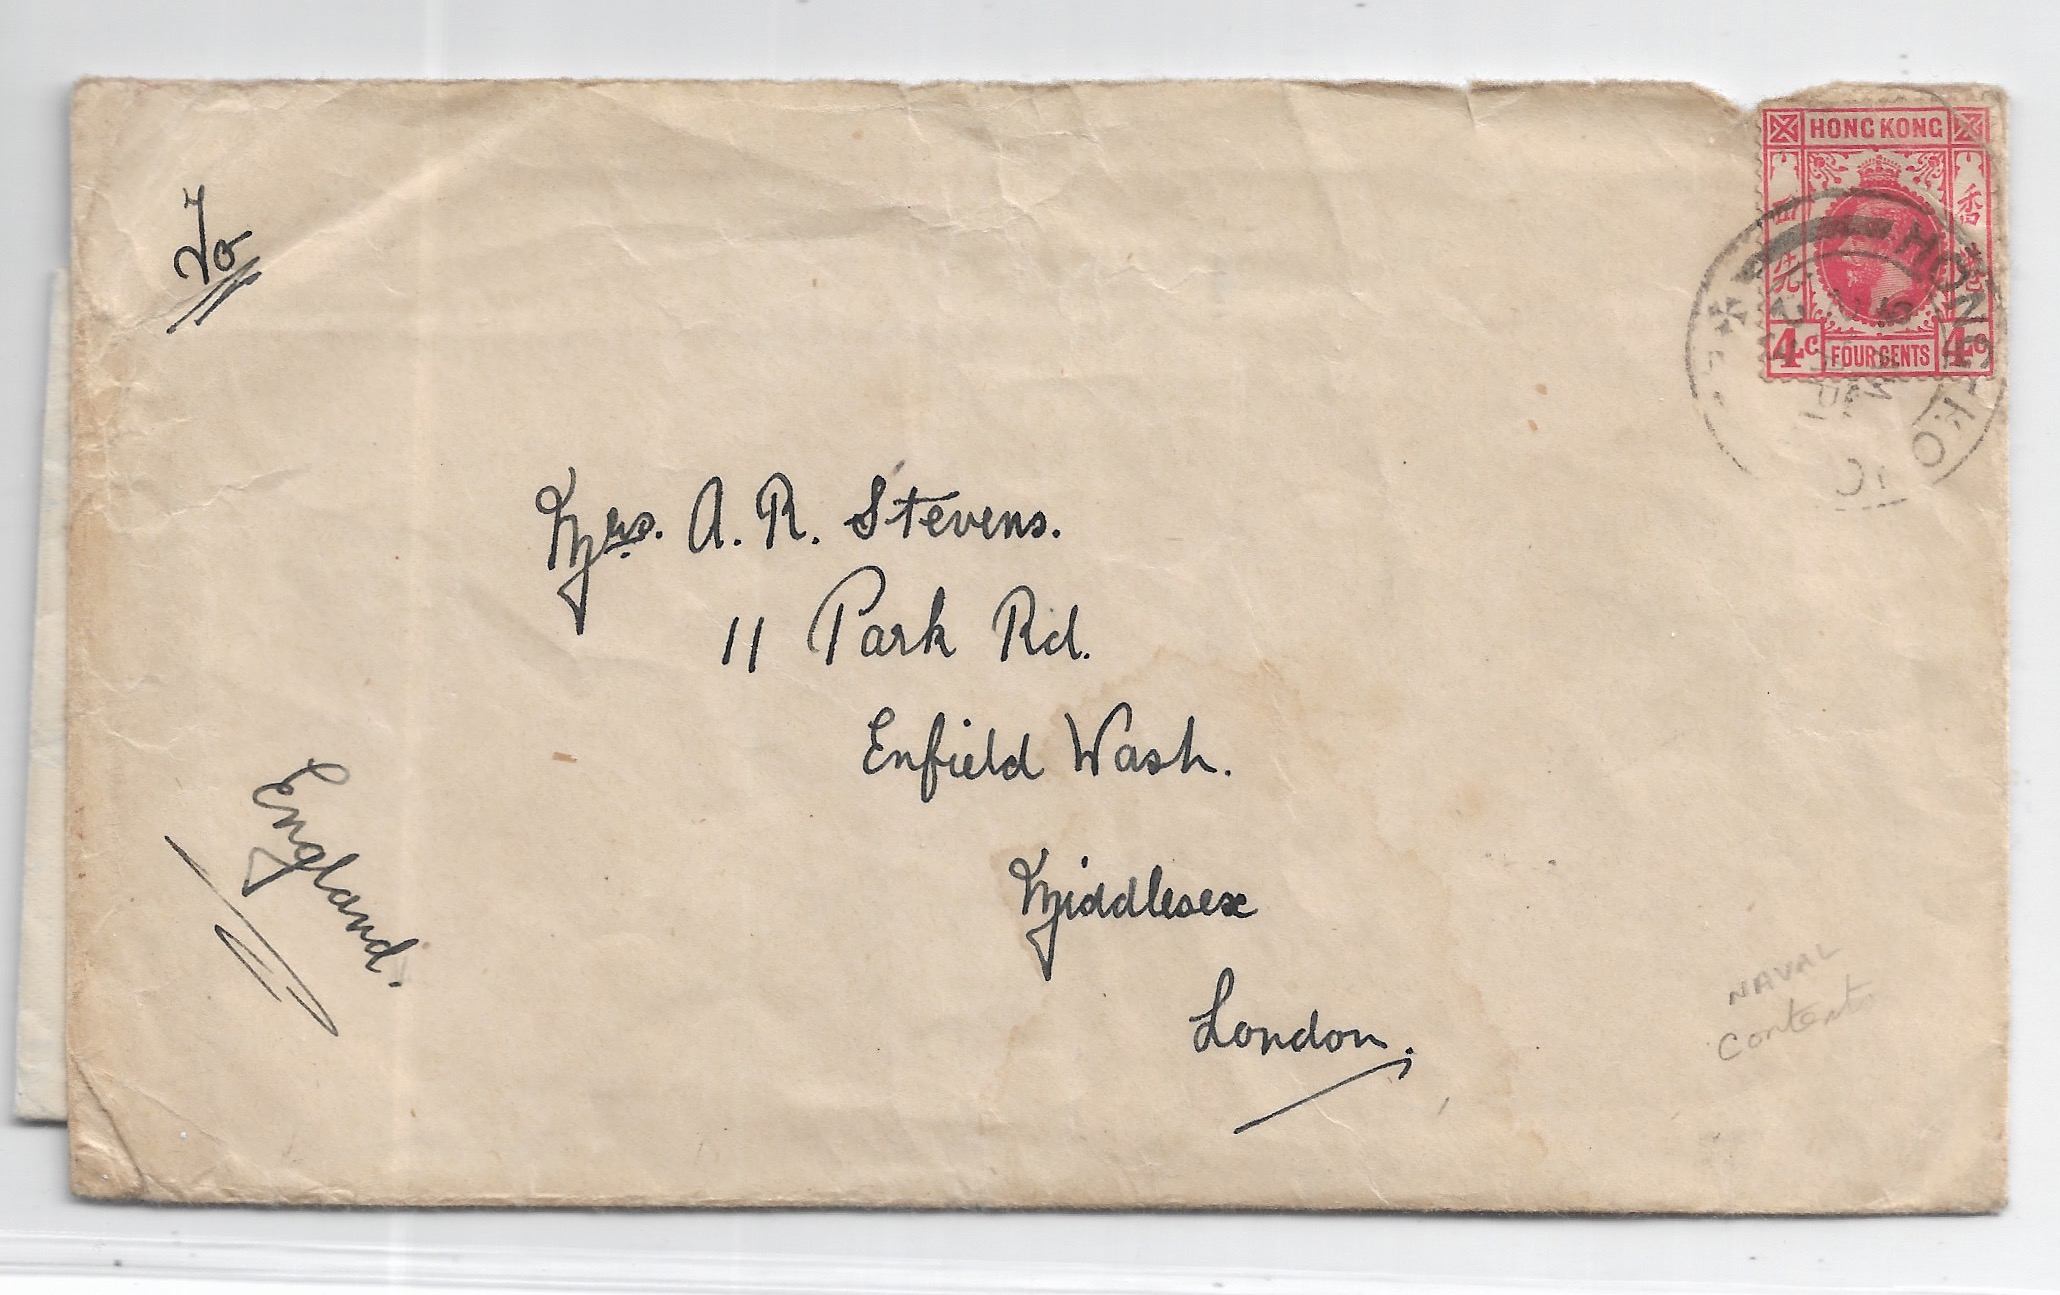 To
HONG KONG
香港
四先
4c FOUR CENTS 4c
HONG KO
Mrs. A. R. Stevens.
11 Park Rd.
Enfield Wash.
Middlesex
London.
England.
NAVAL
Contents